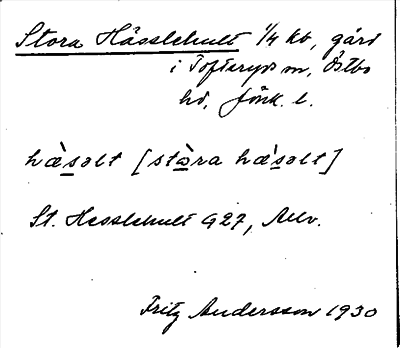 Stora Hässlehult 1/4 kb, gård
i Tofteryds sn, Östbo
hd, Jönk. l.
hæ̀səlt [stòra hæ̀səlt]
St. Hesslehult 927, Allv.
Fritz Andersson 1930